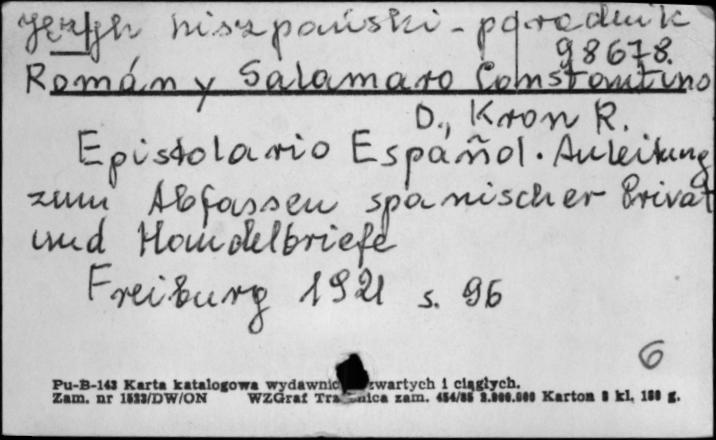 język hiszpański - poradnik
98678.
Román y Salamaro Constantino
D., Kron R.
Epistolario Español. Anleitung
zum Abfassen spanischer Privat
und Handelbriefe
Freiburg 1921 s. 96
6
Pu-B-143 Karta katalogowa wydawnic zwartych i ciągłych.
Zam. nr 1533/DW/ON WZGraf zam. 454/85 2.000.000 Karton 8 kl. 180 g.